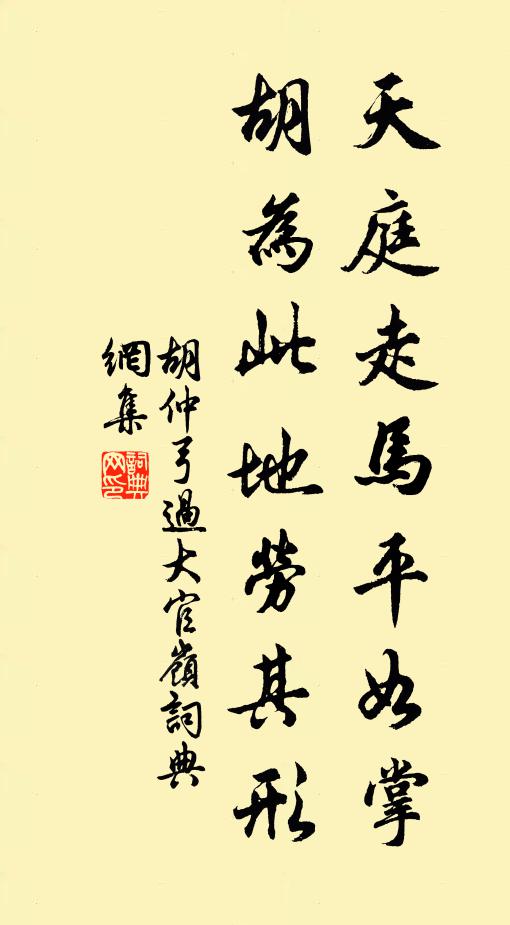 天庭走馬平如掌
胡為此地勞其形
胡仲弓過大官嶺詞典
網集
詞典
网印